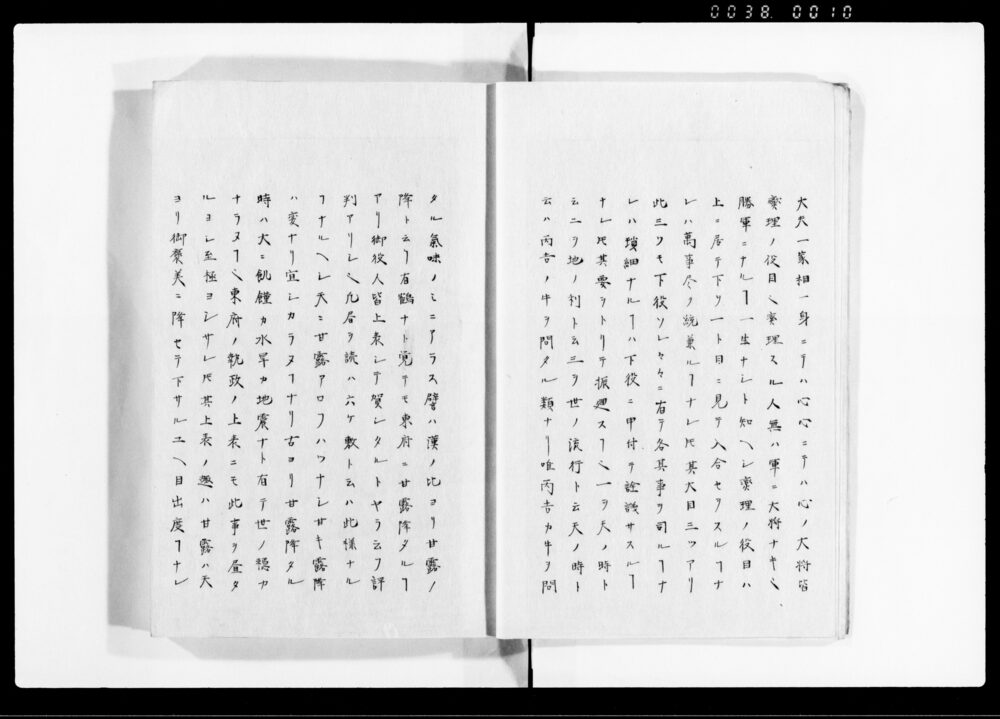 0038 0010
大夫一家相一身ニテハ心心ニテハ心ノ大将皆
燮理ノ役目〆燮理スル人無ハ軍ニ大将ナキ〆
勝軍ニナルヿ一生ナシト知ヘシ燮理ノ役目ハ
上ニ居テ下ヲ一ト目ニ見テ入合セヲスルヿナ
レハ萬事尽ク統兼ルヿナレ𪜈其大目三ツアリ
此三ツモ下役ソレ々々ニ有テ各其事ヲ司ルヿナ
レハ瑣細ナルヿハ下役ニ申付テ詮議サスルヿ
ナレ𪜈其要ヲトリテ振廻スヿ〆一ヲ天ノ時ト
云ニヲ地ノ利ト云三ヲ世ノ流行ト云天ノ時ト
云ハ丙吉ノ牛ヲ問タル類ナリ唯丙吉カ牛ヲ問
タル氣味ノミニアラス譬ハ漢ノ比ヨリ甘露ノ
降ト云ヿ有鶴ナト覚テモ東府ニ甘露降タルヿ
アリ御役人皆上表シテ賀シタルトヤラ云フ評
判アリシ〆凡居ヲ読ハ六ケ敷ト云ハ此様ナル
ヿナルヘシ天ニ甘露アロフハツナシ甘キ露降
ハ変ナリ宜シカラヌヿナリ古ヨリ甘露降タル
時ハ大ニ飢饉カ水旱カ地震ナト有テ世ノ穏カ
ナラヌヿ〆東府ノ執政ノ上表ニモ此事ヲ昼タ
ルヨシ至極ヨシサレ𪜈其上表ノ趣ハ甘露ハ天
ヨリ御褒美ニ降セテ下サルユヘ目出度ヿナレ